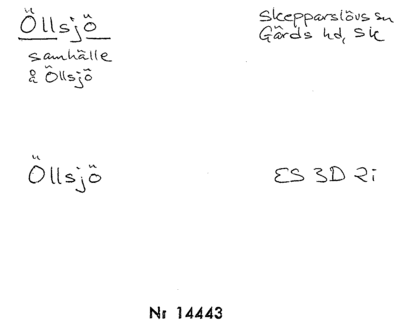 Öllsjö
Skepparslövs sn
Gärds hd, Sk
samhälle
å Öllsjö
Öllsjö
ES 3D 2i
Nr 14443